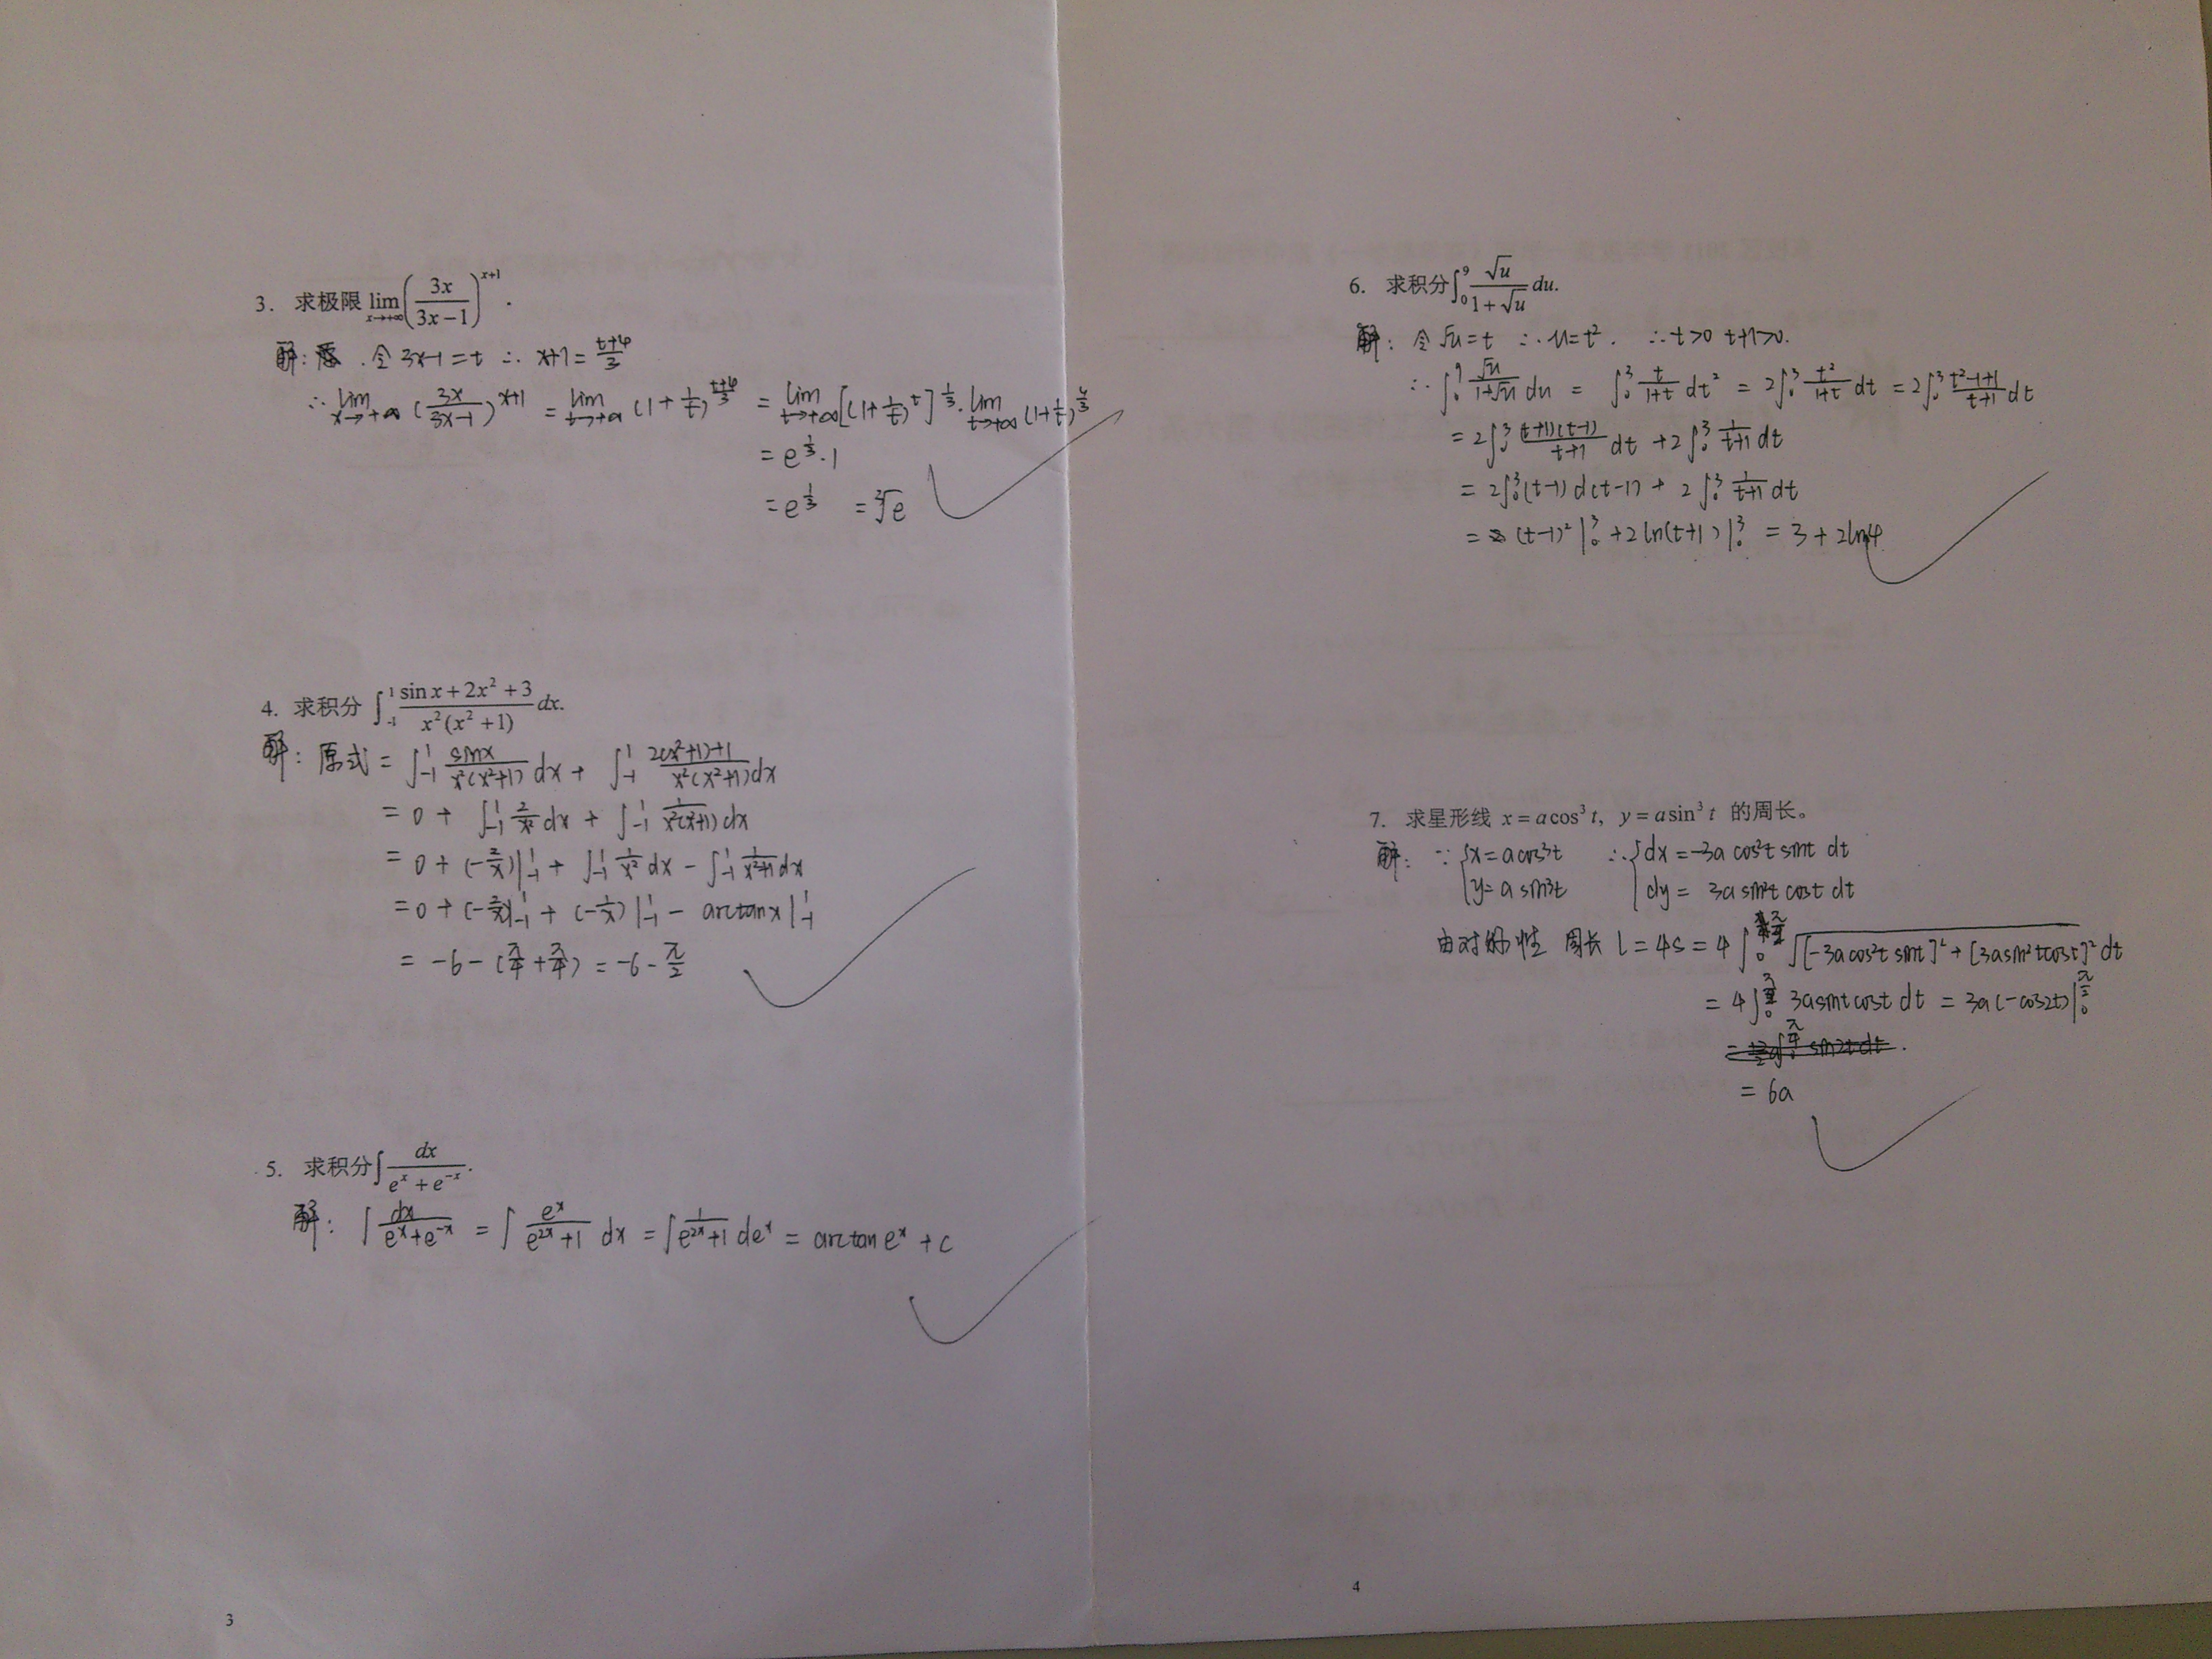 3. 求极限 lim_{x→+∞} (3x/(3x−1))^{x+1}.
解: 令 3x−1=t ∴ x+1=(t+4)/3
∴ lim_{x→+∞} (3x/(3x−1))^{x+1} = lim_{t→+∞} (1+1/t)^{(t+4)/3} = lim_{t→+∞} [(1+1/t)^t]^{1/3} · lim_{t→+∞} (1+1/t)^{4/3}
= e^{1/3}·1
= e^{1/3} = ∛e
4. 求积分 ∫_{-1}^{1} (sin x+2x²+3)/(x²(x²+1)) dx.
解: 原式 = ∫_{-1}^{1} sinx/(x²(x²+1)) dx + ∫_{-1}^{1} (2(x²+1)+1)/(x²(x²+1)) dx
= 0 + ∫_{-1}^{1} 2/x² dx + ∫_{-1}^{1} 1/(x²(x²+1)) dx
= 0 + (−2/x)|_{-1}^{1} + ∫_{-1}^{1} 1/x² dx − ∫_{-1}^{1} 1/(x²+1) dx
= 0 + (−2/x)|_{-1}^{1} + (−1/x)|_{-1}^{1} − arctanx|_{-1}^{1}
= −6−(π/4+π/4) = −6−π/2
5. 求积分 ∫ dx/(e^x+e^{−x}).
解: ∫ dx/(e^x+e^{−x}) = ∫ e^x/(e^{2x}+1) dx = ∫ 1/(e^{2x}+1) de^x = arctan e^x + c
3
6. 求积分 ∫_0^9 √u/(1+√u) du.
解: 令 √u=t ∴ u=t². ∴ t>0 t+1>0.
∴ ∫_0^9 √u/(1+√u) du = ∫_0^3 t/(1+t) dt² = 2∫_0^3 t²/(1+t) dt = 2∫_0^3 (t²−1+1)/(t+1) dt
= 2∫_0^3 (t+1)(t−1)/(t+1) dt + 2∫_0^3 1/(t+1) dt
= 2∫_0^3 (t−1)d(t−1) + 2∫_0^3 1/(t+1) dt
= (t−1)²|_0^3 + 2ln(t+1)|_0^3 = 3+2ln4
7. 求星形线 x=acos³t, y=asin³t 的周长。
解: ∵ {x=acos³t ∴ {dx=−3a cos²t sint dt
{y=a sin³t {dy= 3a sin²t cost dt
由对称性 周长 l=4s=4∫_0^{π/2} √([−3acos²t sint]²+[3asin²tcost]²) dt
= 4∫_0^{π/2} 3asintcost dt = 3a(−cos2t)|_0^{π/2}
= 6a
4